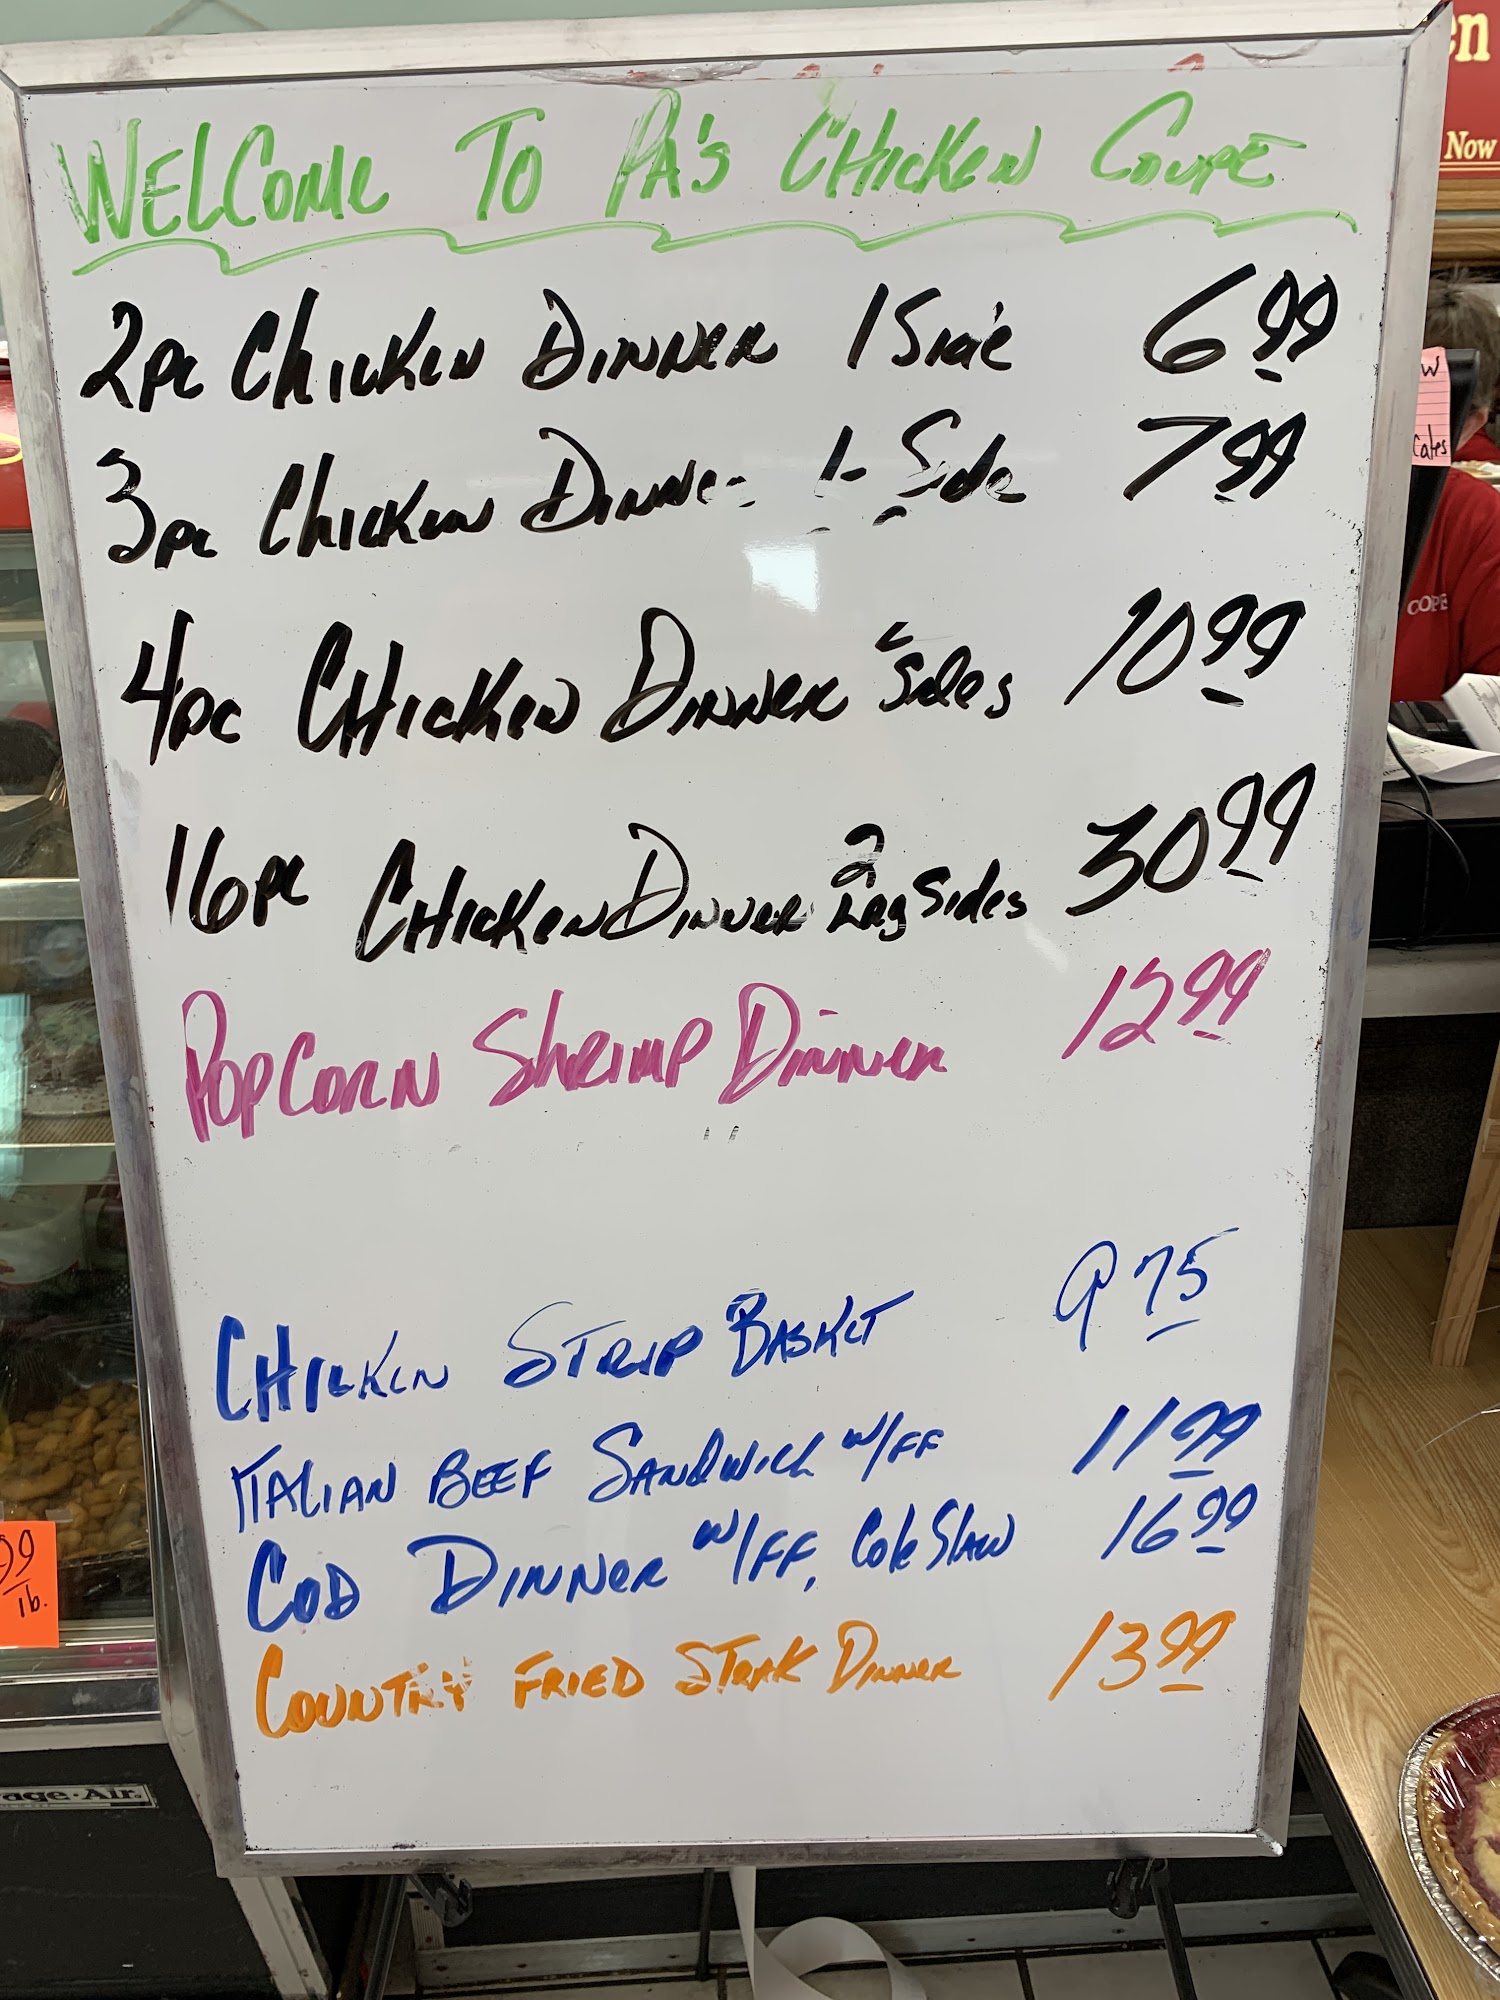 WELCOME TO PA'S CHICKEN COUPE
2pc CHICKEN DINNER 1 Side 6.99
3pc CHICKEN DINNE 1 Side 7.99
4pc CHICKEN DINNER Sides 10.99
16pc CHICKEN DINNER 2 Larg Sides 30.99
POPCORN SHRIMP DINNER 12.99
CHICKEN STRIP BASKET 9.75
ITALIAN BEEF SANDWICH W/FF 11.99
COD DINNER W/FF, Cole Slaw 16.99
COUNTRY FRIED STEAK DINNER 13.99
en
Now
W
Cakes
COPE
99
lb.
rage-Air.